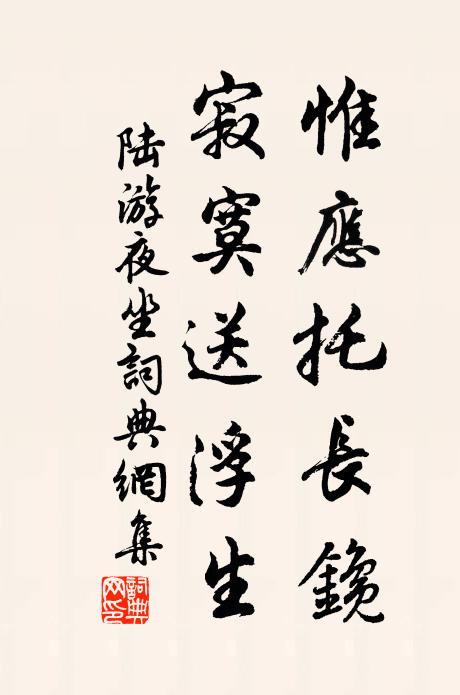 惟應托長鑱
寂寞送浮生
陸游夜坐詞典網集
詞典网印